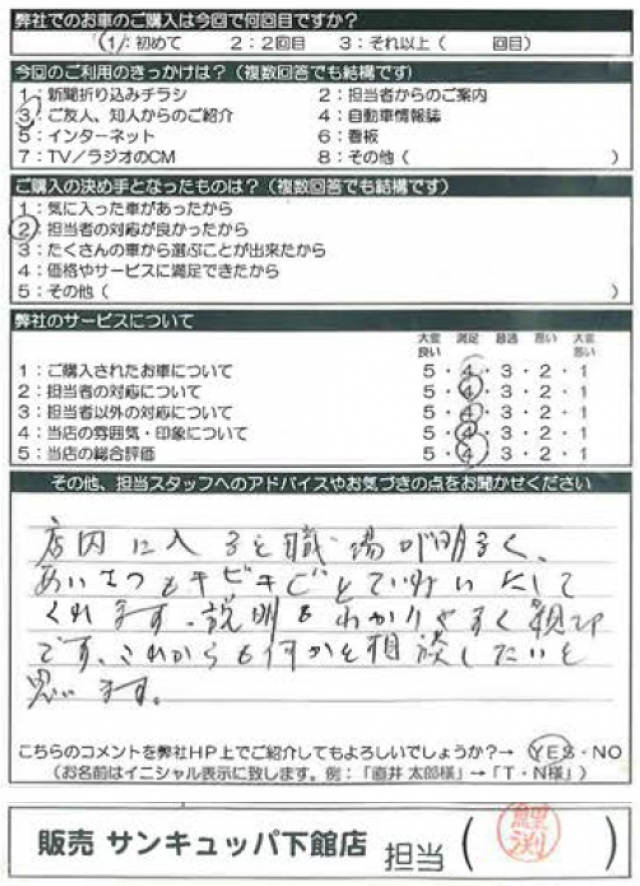 弊社でのお車のご購入は今回で何回目ですか?
1:初めて 2:2回目 3:それ以上( 回目)
今回のご利用のきっかけは?(複数回答でも結構です)
1:新聞折り込みチラシ 2:担当者からのご案内
3:ご友人、知人からのご紹介 4:自動車情報誌
5:インターネット 6:看板
7:TV/ラジオのCM 8:その他( )
ご購入の決め手となったものは?(複数回答でも結構です)
1:気に入った車があったから
2:担当者の対応が良かったから
3:たくさんの車から選ぶことが出来たから
4:価格やサービスに満足できたから
5:その他( )
弊社のサービスについて
大変良い 満足 普通 悪い 大変悪い
1:ご購入されたお車について 5・4・3・2・1
2:担当者の対応について 5・4・3・2・1
3:担当者以外の対応について 5・4・3・2・1
4:当店の雰囲気・印象について 5・4・3・2・1
5:当店の総合評価 5・4・3・2・1
その他、担当スタッフへのアドバイスやお気づきの点をお聞かせください
店内に入ると職場が明るく、
あいさつもキビキビとていねいにして
くれます。説明もわかりやすく親切
です、これからも何かと相談したいと
思います。
こちらのコメントを弊社HP上でご紹介してもよろしいでしょうか?→ YES・NO
(お名前はイニシャル表示に致します。例:「直井 太郎様」→「T・N様」)
販売 サンキュッパ下館店 担当( 鯉渕 )